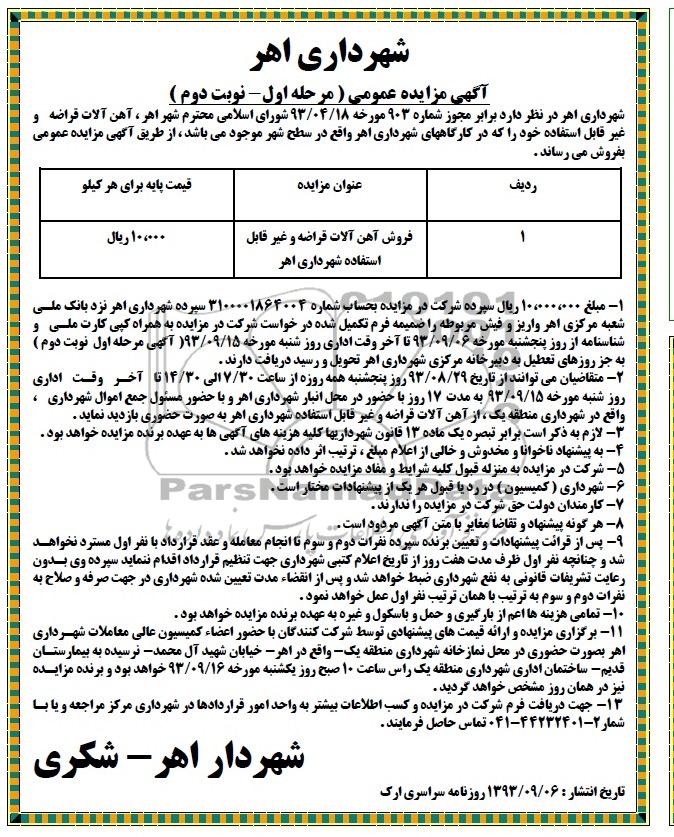 شهرداری اهر
آگهی مزایده عمومی ( مرحله اول– نوبت دوم )
شهرداری اهر در نظر دارد برابر مجوز شماره ۹۰۳ مورخه ۹۳/۰۴/۱۸ شورای اسلامی محترم شهر اهر ، آهن آلات قراضه و
غیر قابل استفاده خود را که در کارگاههای شهرداری اهر واقع در سطح شهر موجود می باشد ، از طریق آگهی مزایده عمومی
بفروش می رساند .
ردیف عنوان مزایده قیمت پایه برای هر کیلو
۱ فروش آهن آلات قراضه و غیر قابل ۱۰،۰۰۰ ریال
استفاده شهرداری اهر
۱– مبلغ ۱۰،۰۰۰،۰۰۰ ریال سپرده شرکت در مزایده بحساب شماره ۳۱۰۰۰۰۱۸۶۴۰۰۴ سپرده شهرداری اهر نزد بانک ملی
شعبه مرکزی اهر واریز و فیش مربوطه را ضمیمه فرم تکمیل شده در خواست شرکت در مزایده به همراه کپی کارت ملی و
شناسنامه از روز پنجشنبه مورخه ۹۳/۰۹/۰۶ تا آخر وقت اداری روز شنبه مورخه ۹۳/۰۹/۱۵( آگهی مرحله اول نوبت دوم )
به جز روزهای تعطیل به دبیرخانه مرکزی شهرداری اهر تحویل و رسید دریافت دارند .
۲– متقاضیان می توانند از تاریخ ۹۳/۰۸/۲۹ روز پنجشنبه همه روزه از ساعت ۷/۳۰ الی ۱۴/۳۰ تا آخر وقت اداری
روز شنبه مورخه ۹۳/۰۹/۱۵ به مدت ۱۷ روز با حضور در محل انبار شهرداری اهر و با حضور مسئول جمع اموال شهرداری ،
واقع در شهرداری منطقه یک ، از آهن آلات قراضه و غیر قابل استفاده شهرداری اهر به صورت حضوری بازدید نماید .
۳– لازم به ذکر است برابر تبصره یک ماده ۱۳ قانون شهرداریها کلیه هزینه های آگهی ها به عهده برنده مزایده خواهد بود .
۴– به پیشنهاد ناخوانا و مخدوش و خالی از اعلام مبلغ ، ترتیب اثر داده نخواهد شد .
۵– شرکت در مزایده به منزله قبول کلیه شرایط و مفاد مزایده خواهد بود .
۶– شهرداری ( کمیسیون ) در رد یا قبول هر یک از پیشنهادات مختار است .
۷– کارمندان دولت حق شرکت در مزایده را ندارند .
۸– هر گونه پیشنهاد و تقاضا مغایر با متن آگهی مردود است .
۹– پس از قرائت پیشنهادات و تعیین برنده سپرده نفرات دوم و سوم تا انجام معامله و عقد قرارداد با نفر اول مسترد نخواهد
شد و چنانچه نفر اول ظرف مدت هفت روز از تاریخ اعلام کتبی شهرداری جهت تنظیم قرارداد اقدام ننماید سپرده وی بدون
رعایت تشریفات قانونی به نفع شهرداری ضبط خواهد شد و پس از انقضاء مدت تعیین شده شهرداری در جهت صرفه و صلاح به
نفرات دوم و سوم به ترتیب با همان ترتیب نفر اول عمل خواهد نمود .
۱۰– تمامی هزینه ها اعم از بارگیری و حمل و باسکول و غیره به عهده برنده مزایده خواهد بود .
۱۱– برگزاری مزایده و ارائه قیمت های پیشنهادی توسط شرکت کنندگان با حضور اعضاء کمیسیون عالی معاملات شهرداری
اهر بصورت حضوری در محل نمازخانه شهرداری منطقه یک– واقع در اهر– خیابان شهید آل محمد– نرسیده به بیمارستان
قدیم– ساختمان اداری شهرداری منطقه یک راس ساعت ۱۰ صبح روز یکشنبه مورخه ۹۳/۰۹/۱۶ خواهد بود و برنده مزایده
نیز در همان روز مشخص خواهد گردید .
۱۳– جهت دریافت فرم شرکت در مزایده و کسب اطلاعات بیشتر به واحد امور قراردادها در شهرداری مرکز مراجعه و یا با
شمار۲–۴۴۲۳۲۴۰۱–۰۴۱ تماس حاصل فرمایند .
شهردار اهر– شکری
تاریخ انتشار : ۱۳۹۳/۰۹/۰۶ روزنامه سراسری ارک